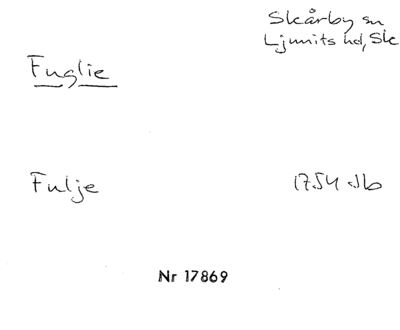 Skårby sn
Ljunits hd, Sk
Fuglie
Fulje
1754 Jb
Nr 17869